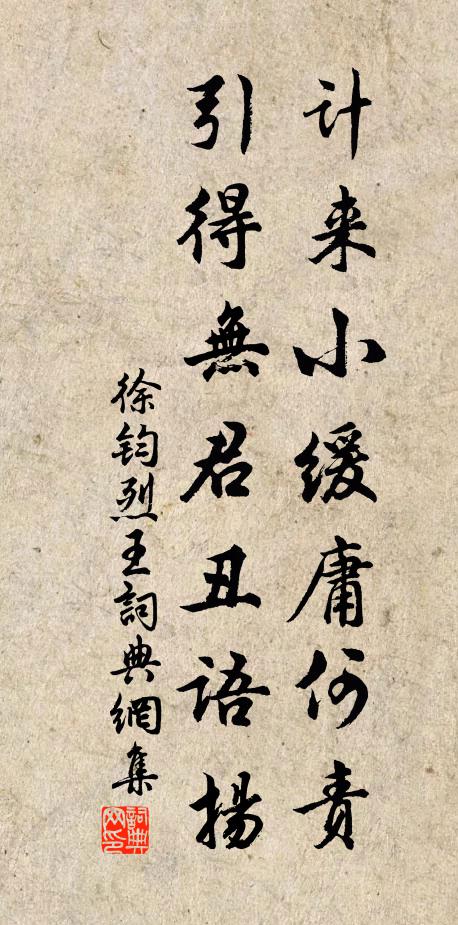 计来小缓庸何责
引得無君丑语揚
徐钧烈王詞典網集
詞典网印